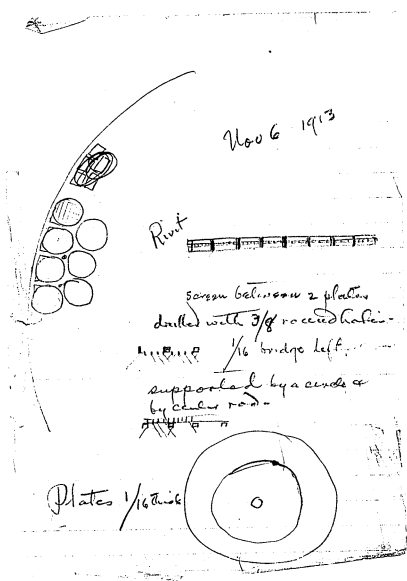 Nov 6 1913
Rivit
screen between 2 plates
drilled with 3/8 round holes -
1/16 bridge left.
supported by a circle &
by center rod -
Plates 1/16 thick